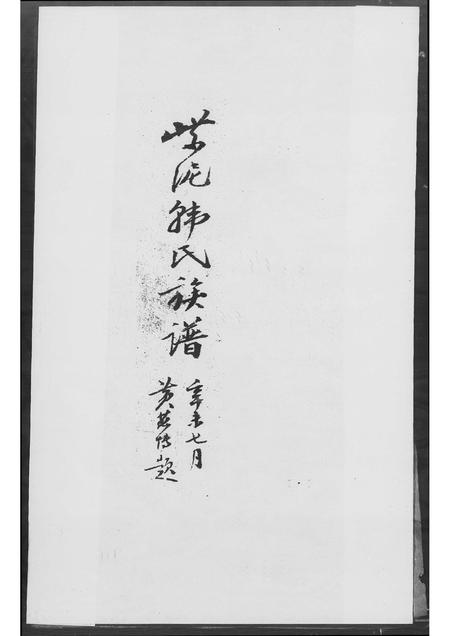 紫泥韩氏族谱
辛未七月
黄 题